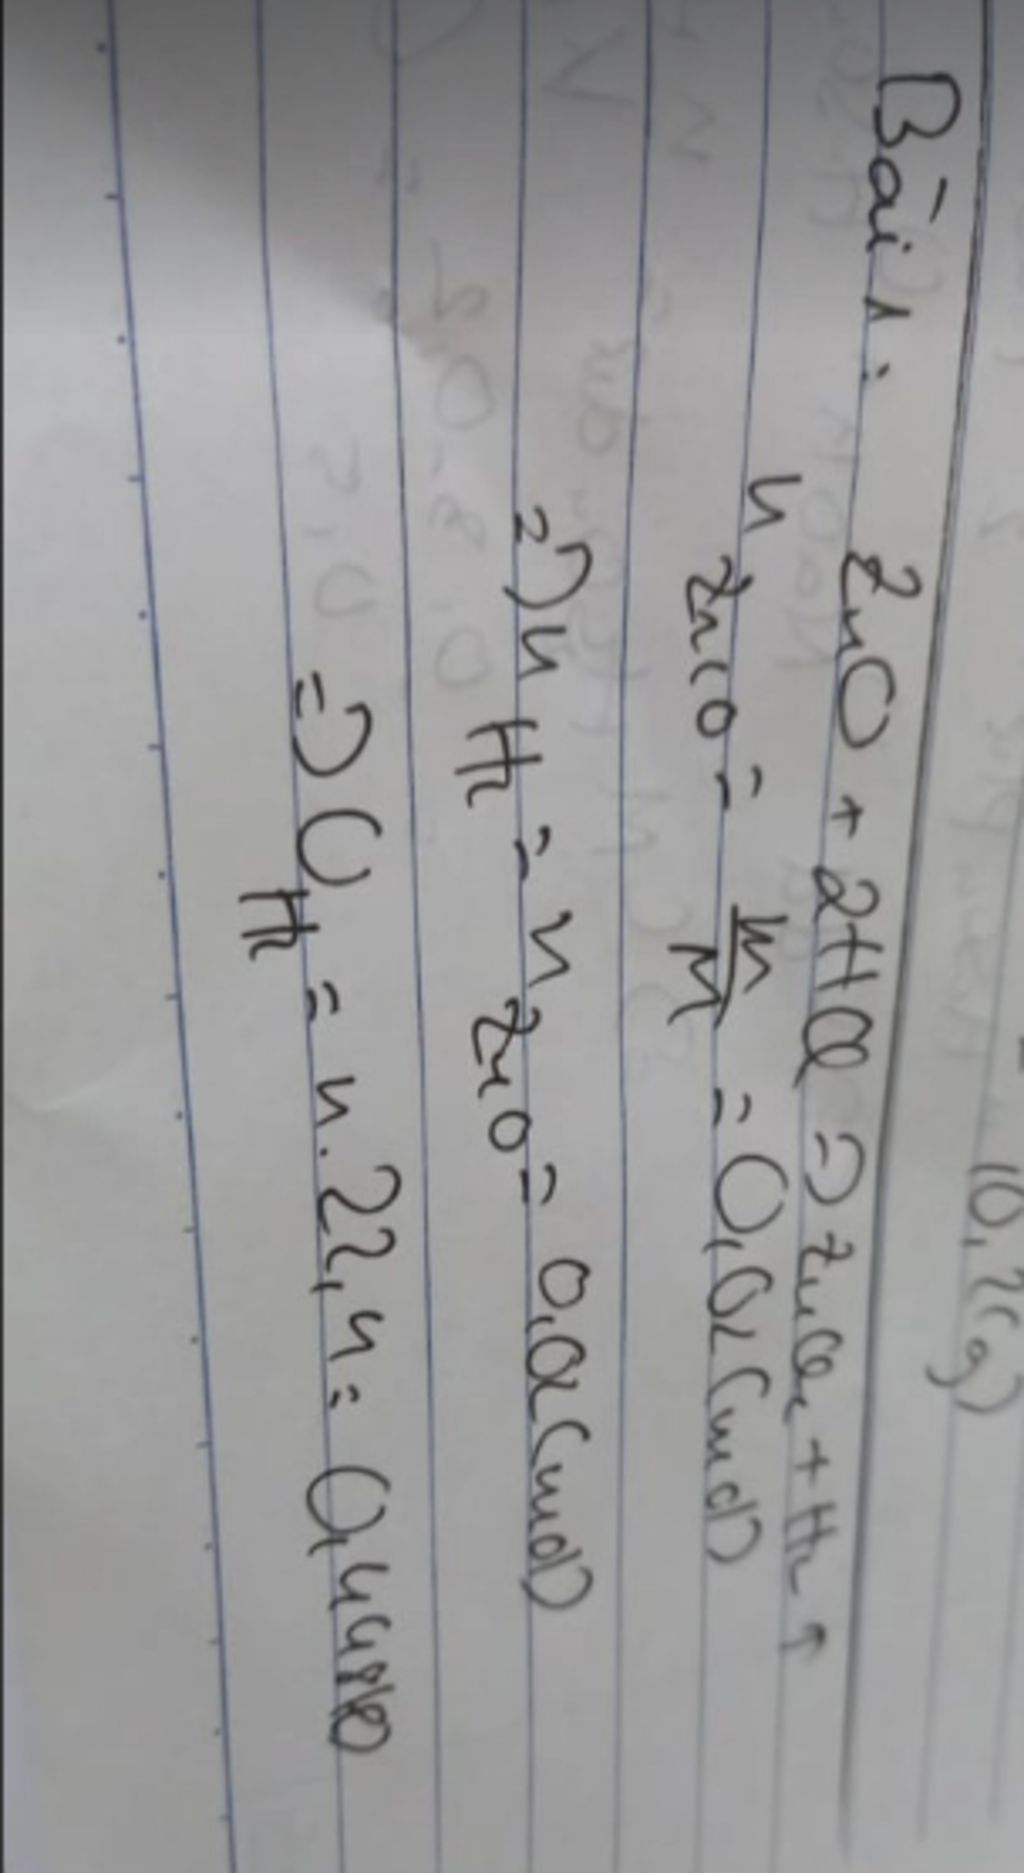 10,2(g)
Bài 1: ZnO + 2HCl => ZnCl2 + H2 ↑
n ZnO = m/M = 0,02 (mol)
=> n H2 = n ZnO = 0,02 (mol)
=> V H2 = n.22,4 = 0,448 l